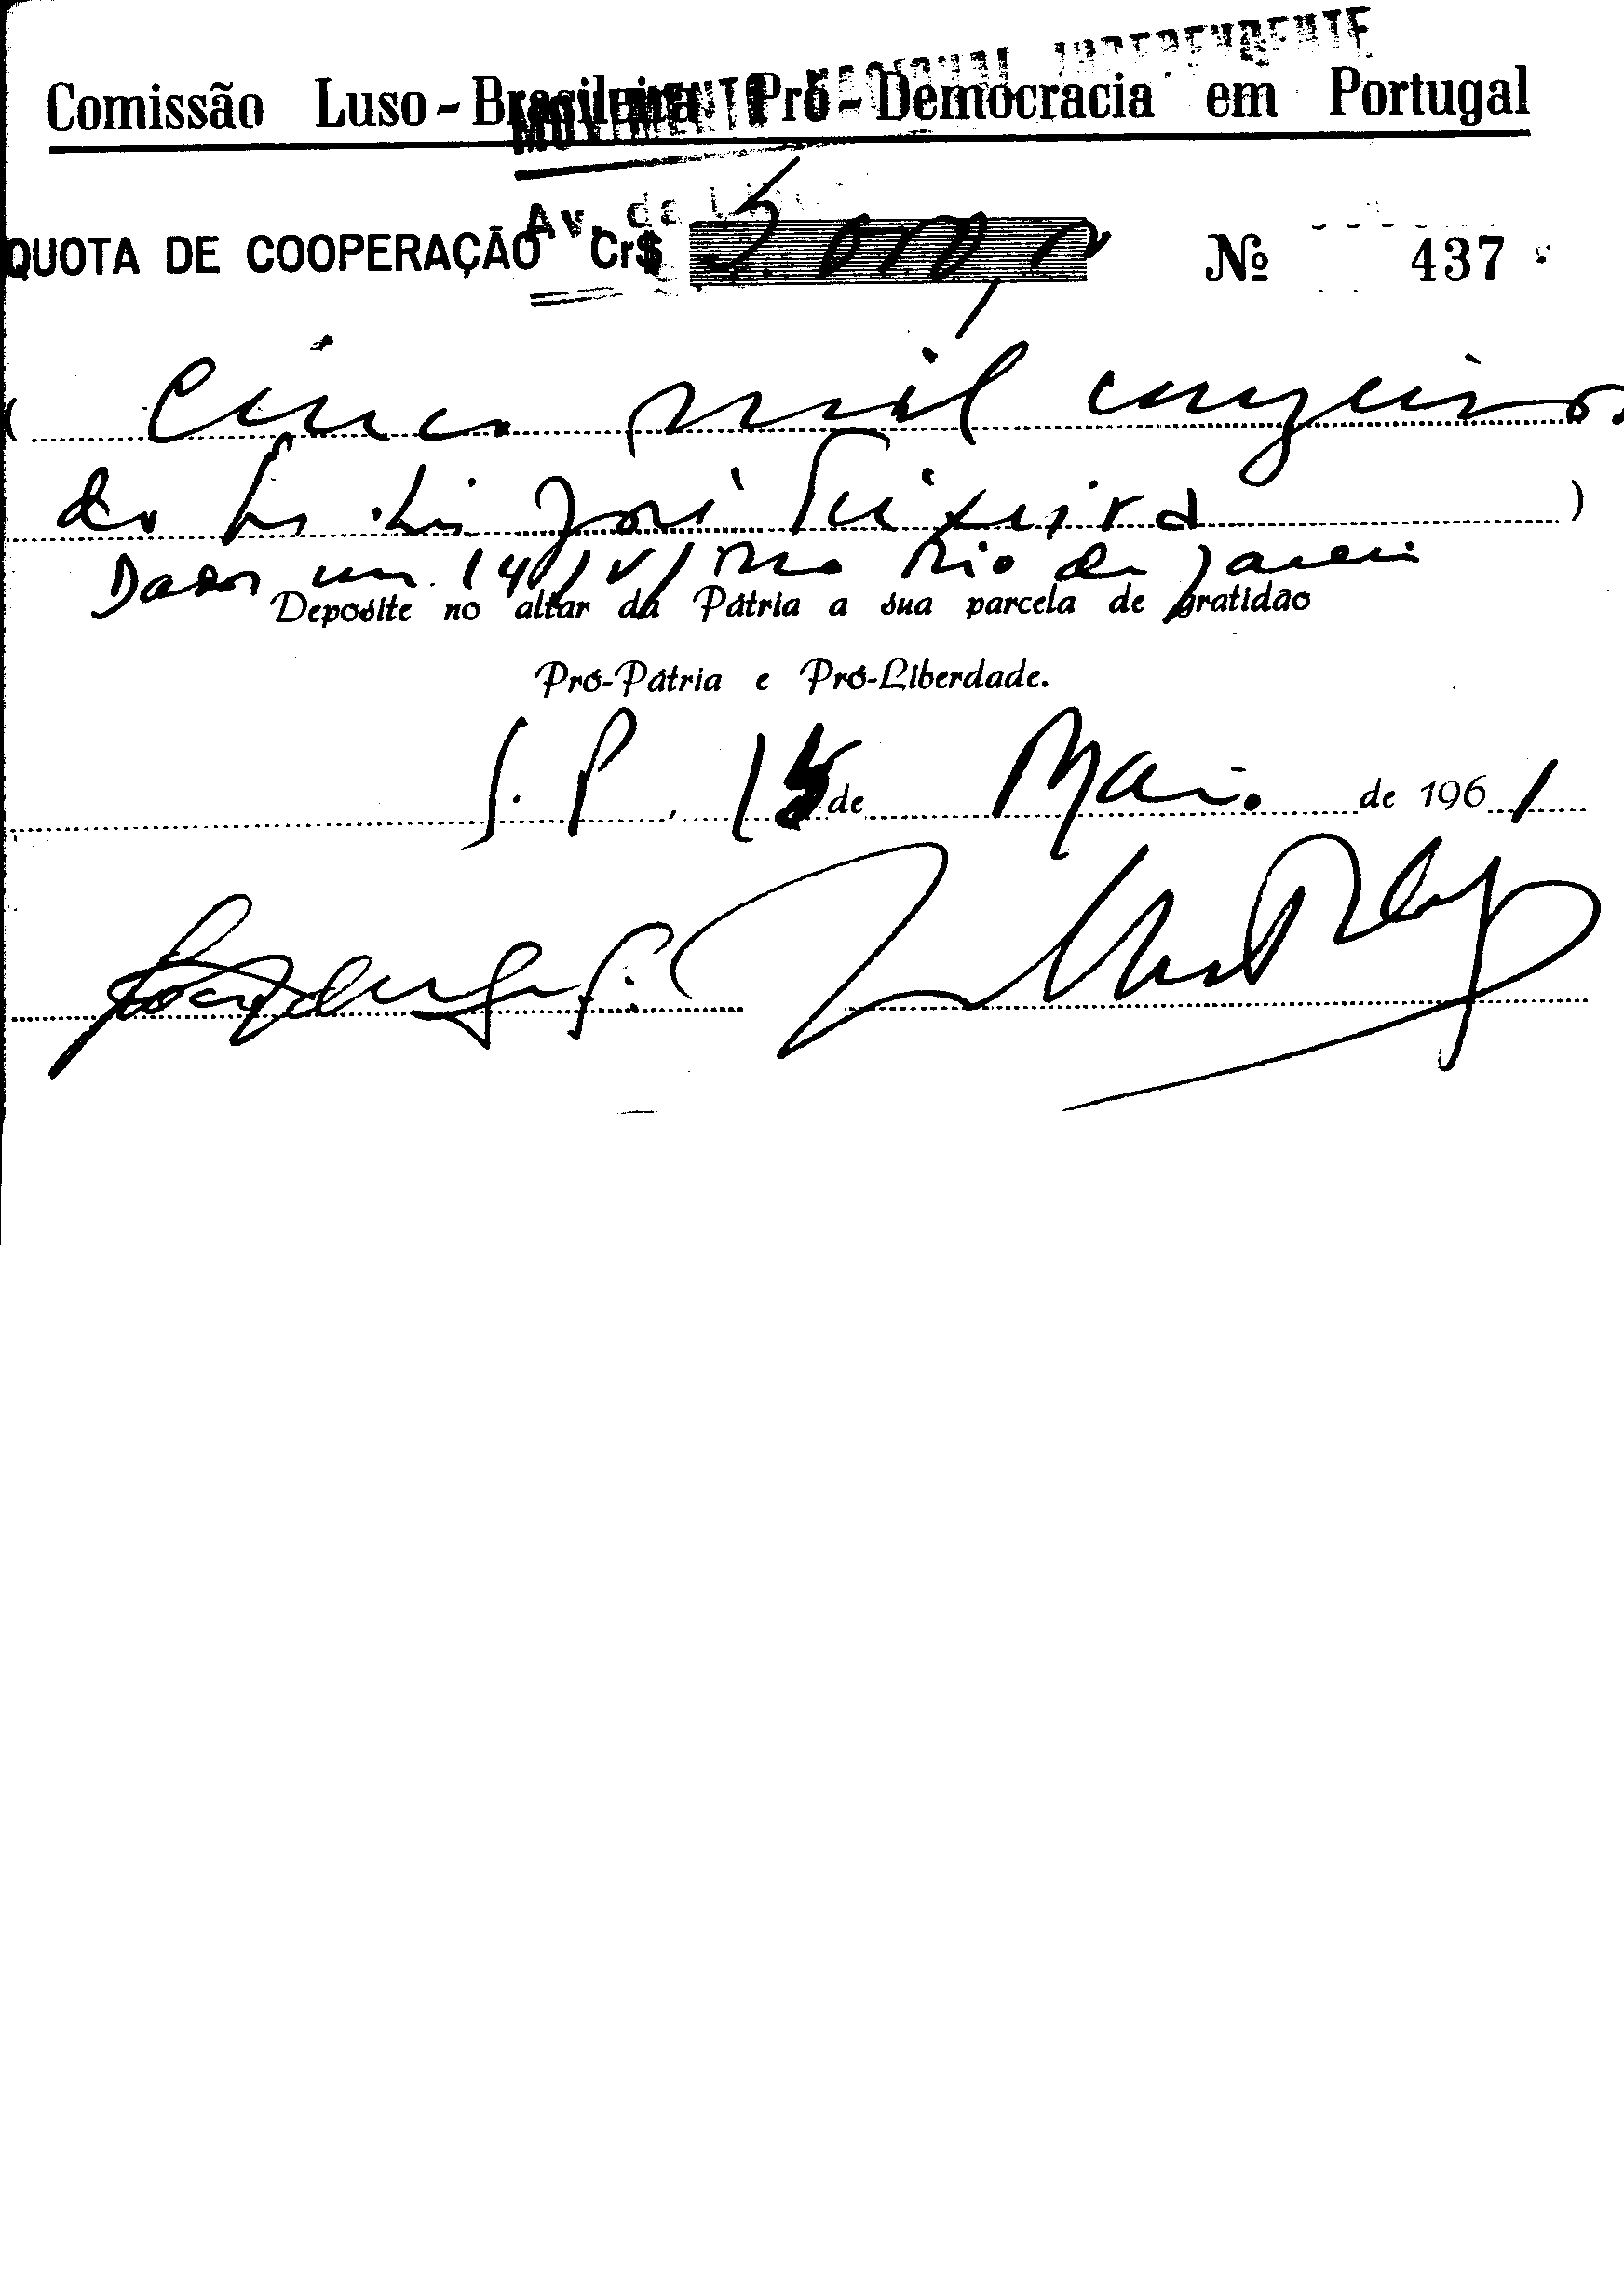 MOVIMENTO NACIONAL INDEPENDENTE
Comissão Luso-Brasileira Pró-Democracia em Portugal
Av. da
QUOTA DE COOPERAÇÃO Cr$ 5.000,00 Nº 437
( Cinco mil cruzeiros
do José Teixeira )
Dados em 14/V/ no Rio de Janeiro
Deposite no altar da Pátria a sua parcela de gratidão
Pró-Pátria e Pró-Liberdade.
S. P., 15 de Maio de 1961